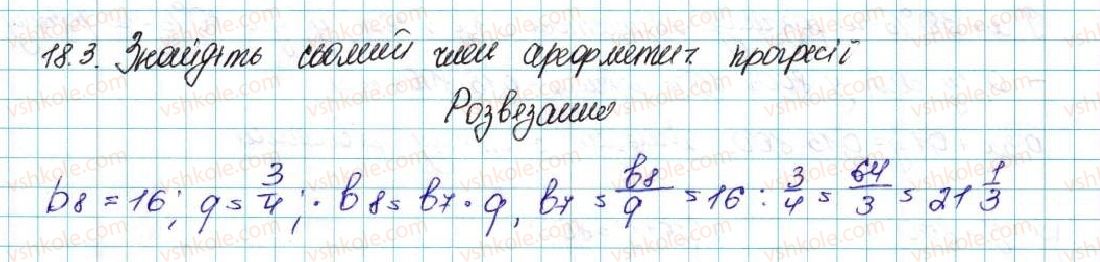 18.3. Знайдіть сьомий член арефметич. прогресії
Розвезання
b₈ = 16; q = 3/4; · b₈ = b₇ · q, b₇ = b₈/q = 16 : 3/4 = 64/3 = 21 1/3